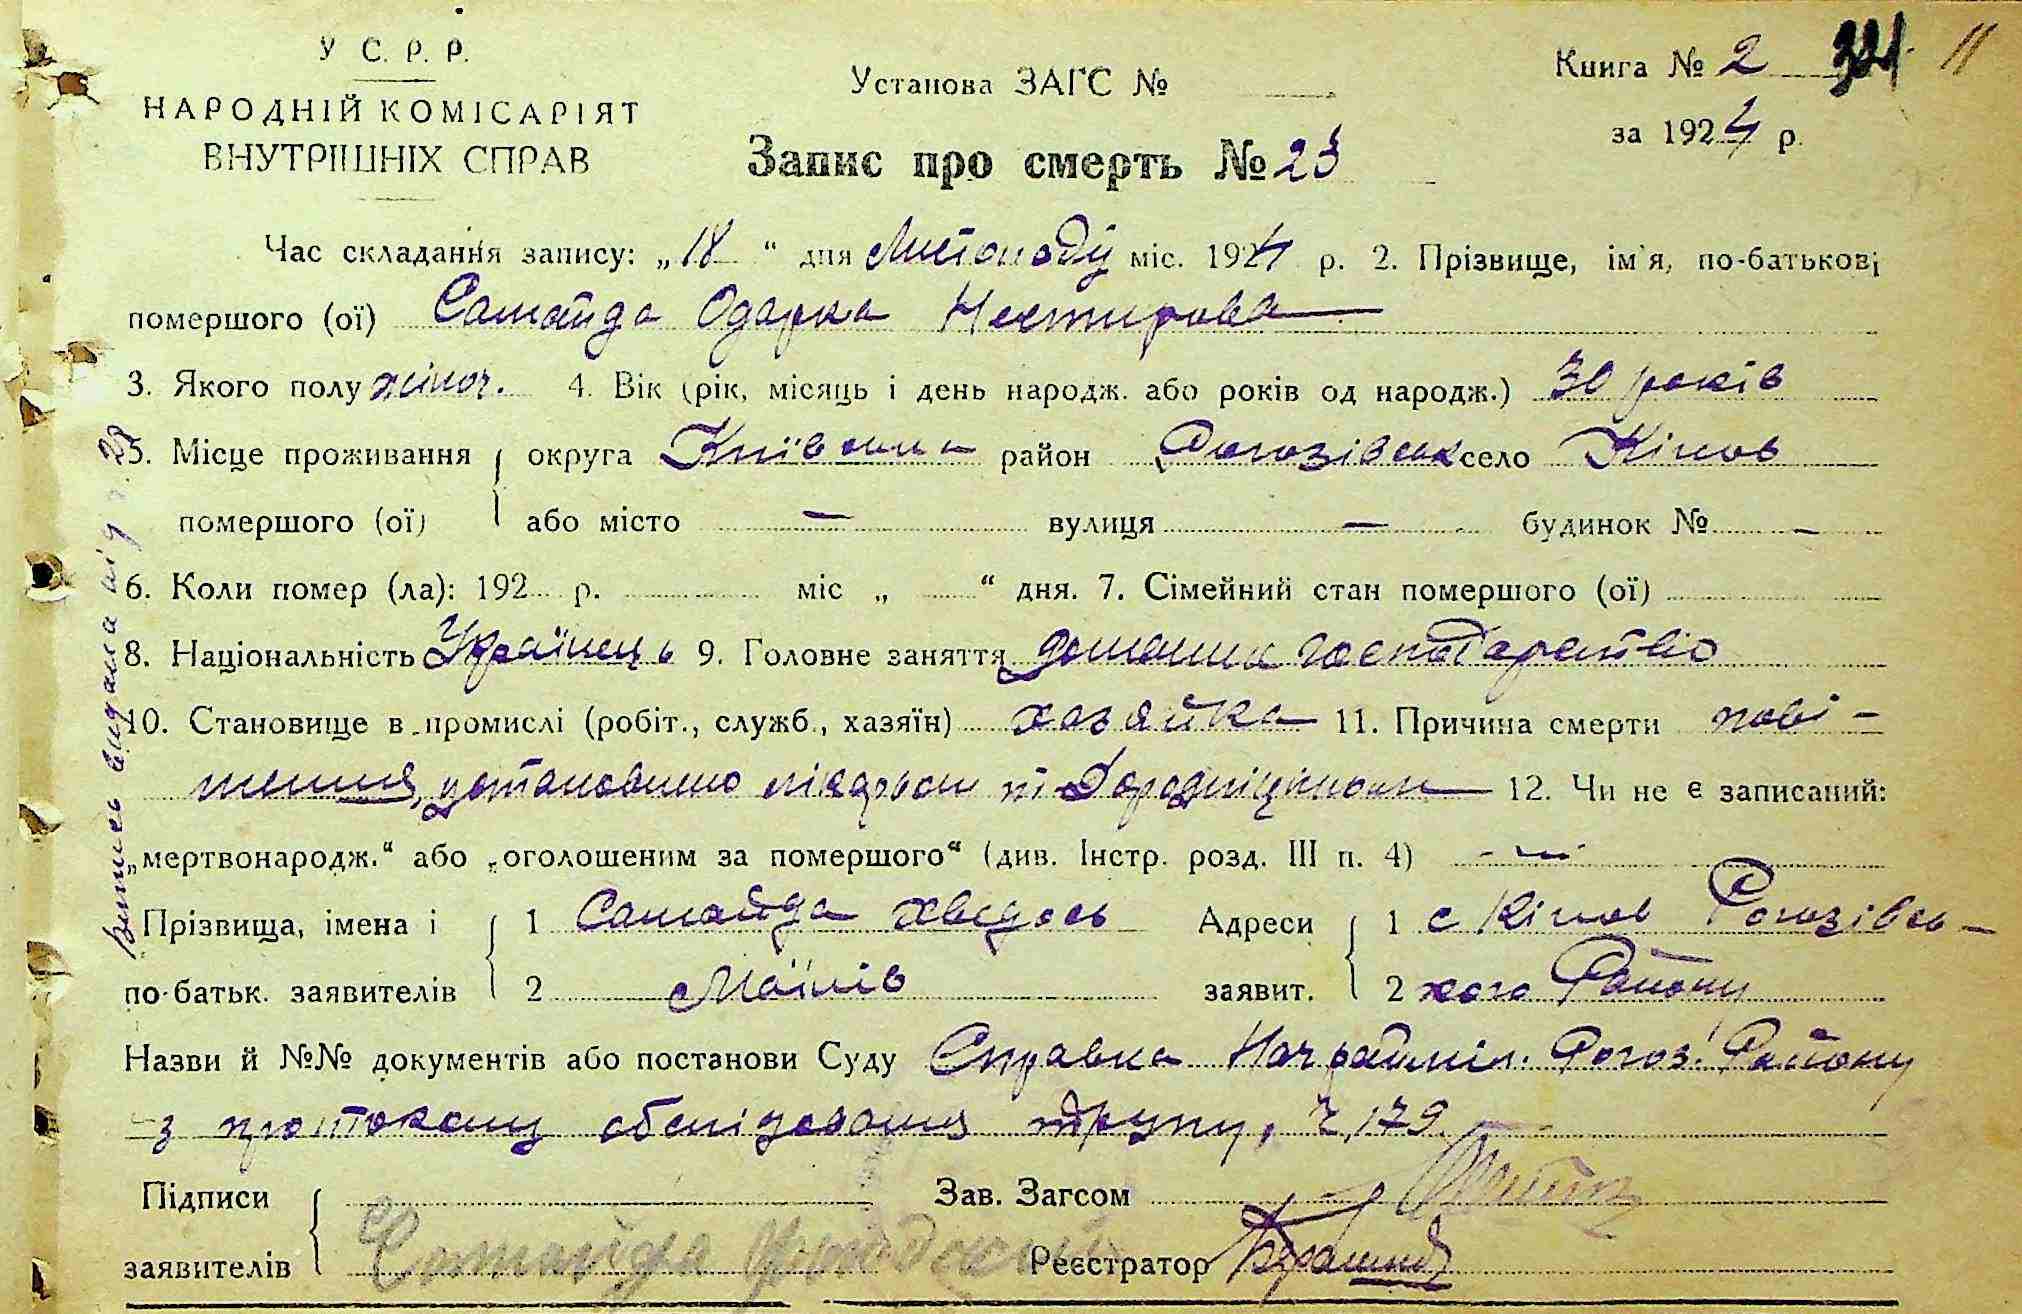 У С. Р. Р.
НАРОДНІЙ КОМІСАРІЯТ
ВНУТРІШНІХ СПРАВ
Установа ЗАГС №
Запис про смерть № 23
Книга № 2 11
за 1924 р.
Час складання запису: „18“ дня Листопаду міс. 1924 р. 2. Прізвище, ім'я, по-батькові
помершого (ої) Самайда Одарка Нестирова
3. Якого полу жіноч. 4. Вік (рік, місяць і день народж. або років од народж.) 30 років
5. Місце проживання округа Київська район Рогозівськ село Кіпов
помершого (ої) або місто — вулиця — будинок № —
6. Коли помер (ла): 192 р. міс „ “ дня. 7. Сімейний стан помершого (ої)
8. Національність Українець 9. Головне заняття домашнє господарство
10. Становище в промислі (робіт., служб., хазяїн) хазяйка 11. Причина смерти пові-
шення, установлено лікарем 12. Чи не є записаний:
„мертвонародж.“ або „оголошеним за помершого“ (див. Інстр. розд. III п. 4)
Прізвища, імена і 1 Самайда Хведось Адреси 1 с Кіпов Рогозівсь-
по-батьк. заявителів 2 заявит. 2 кого Району
Назви й №№ документів або постанови Суду Справка Начраймил. Рогоз. Району
з протокому обслідования трупу, 179.
Підписи Зав. Загсом
заявителів Самайда Реєстратор